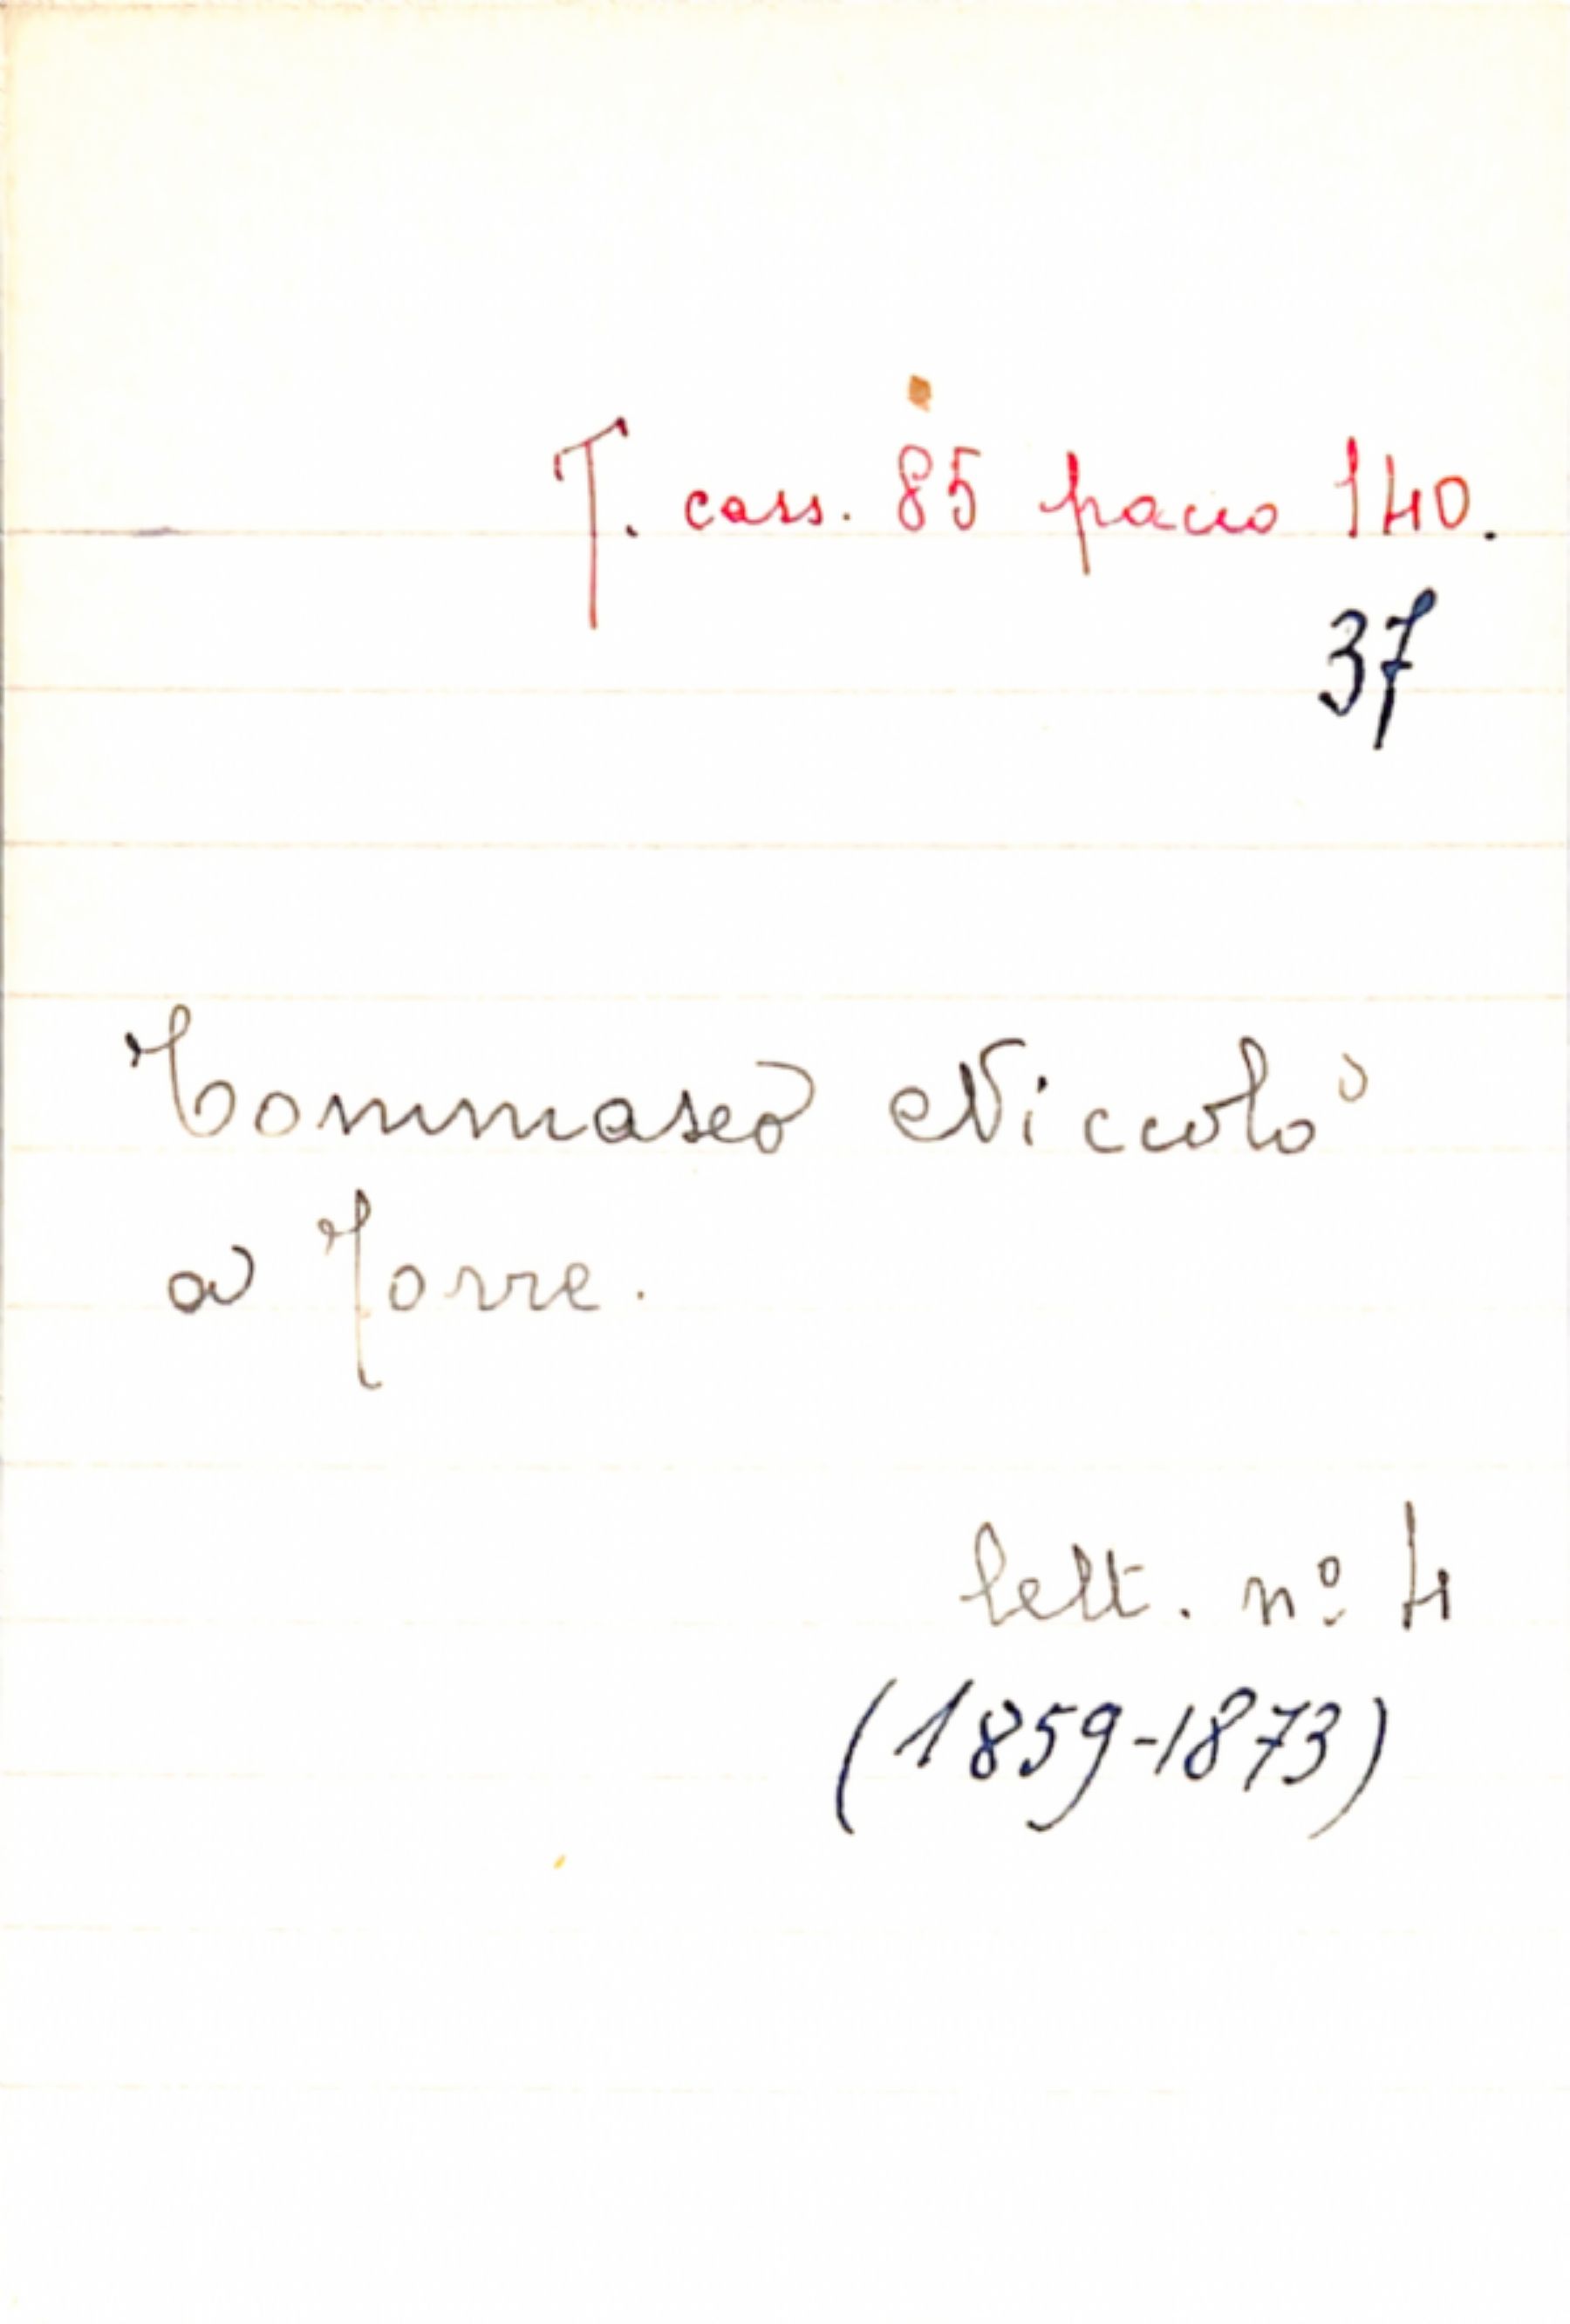 T. cass. 85 pacco 140.
37
Tommaseo Niccolò
a Torre.
lett. nº 4
(1859-1873)